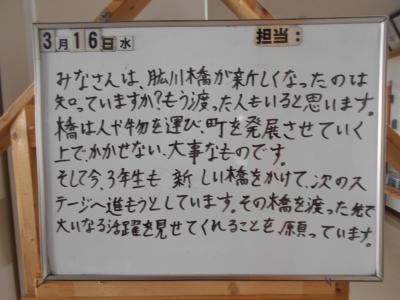 3月16日水 担当:
みなさんは、肱川橋が新しくなったのは
知っていますか?もう渡った人もいると思います。
橋は人や物を運び、町を発展させていく
上で、かかせない、大事なものです。
そして今、3年生も 新しい橋をかけて、次のス
テージへ進もうとしています。その橋を渡った先で
大いなる活躍を見せてくれることを、願っています。